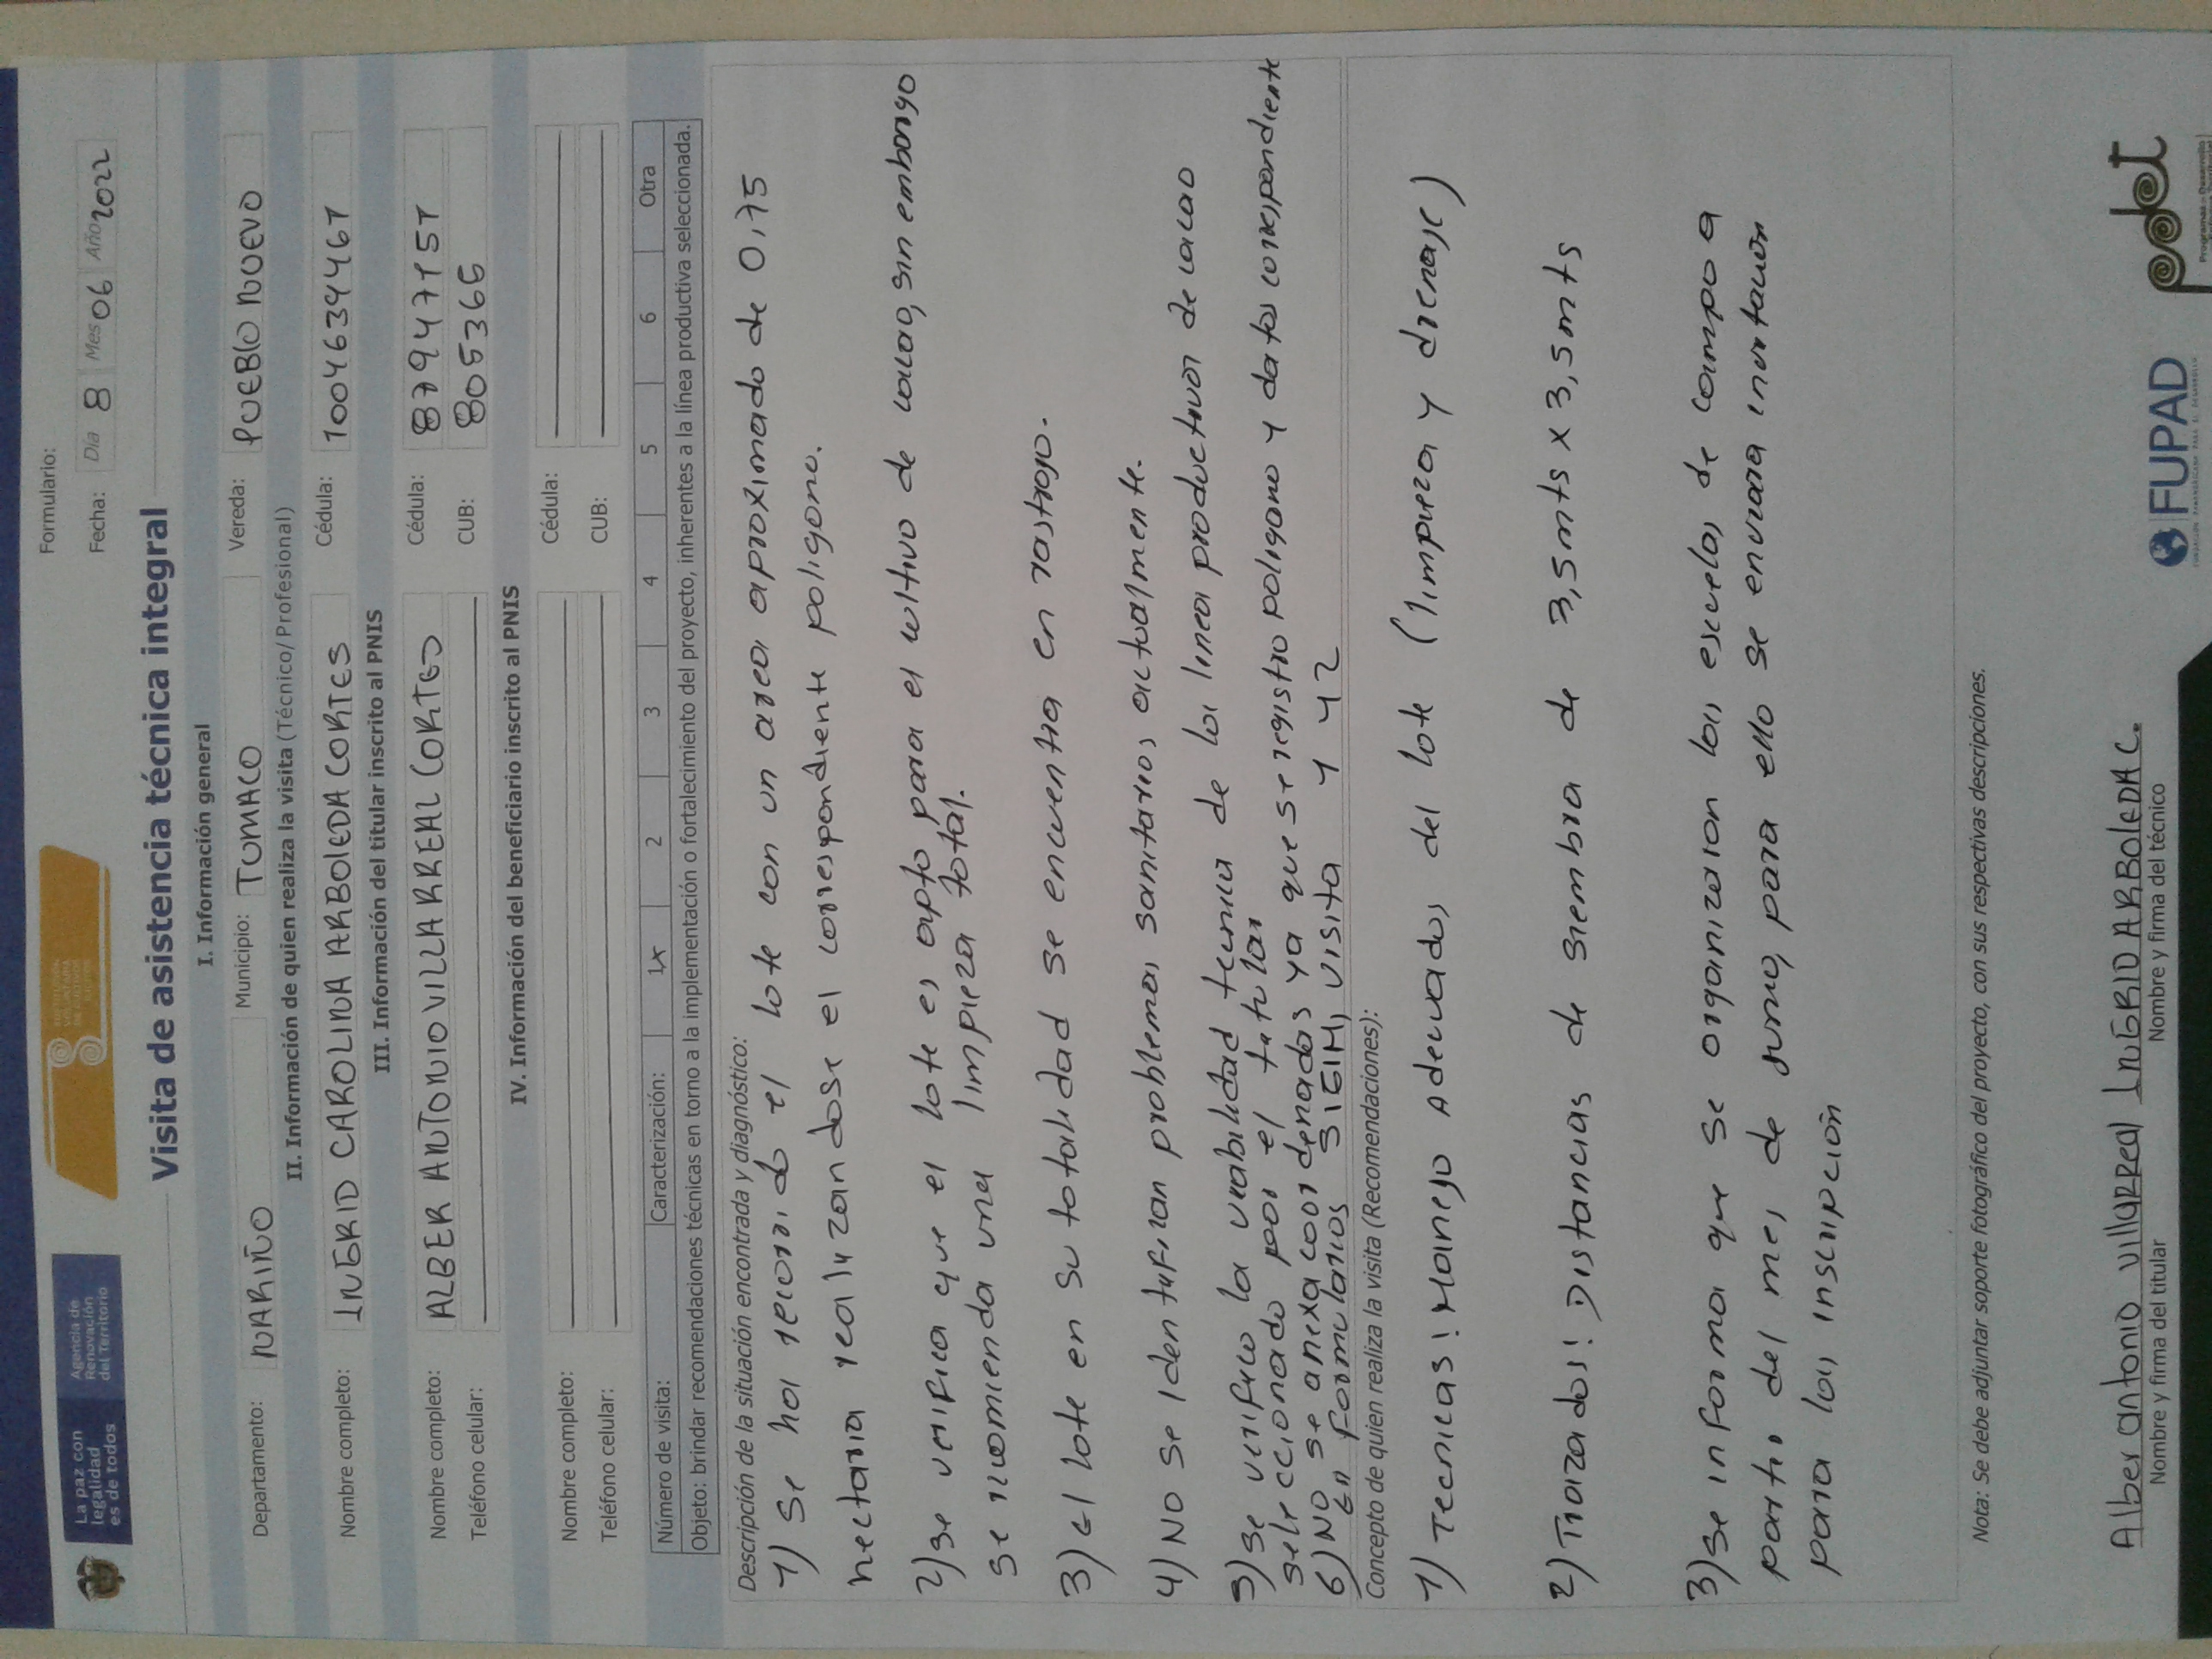 La paz con
legalidad
es de todos
Agencia de
Renovación
del Territorio
Formulario:
Fecha: Día 8 Mes 06 Año 2022
Visita de asistencia técnica integral
I. Información general
Departamento: NARIÑO Municipio: TUMACO Vereda: PUEBLO NUEVO
II. Información de quien realiza la visita (Técnico/ Profesional)
Nombre completo: INGRID CAROLINA ARBOLEDA CORTES Cédula: 1004634467
III. Información del titular inscrito al PNIS
Nombre completo: ALBER ANTONIO VILLARREAL CORTES Cédula: 87947157
Teléfono celular: CUB: 805366
IV. Información del beneficiario inscrito al PNIS
Nombre completo: Cédula:
Teléfono celular: CUB:
Número de visita: Caracterización: 1x 2 3 4 5 6 Otra
Objeto: brindar recomendaciones técnicas en torno a la implementación o fortalecimiento del proyecto, inherentes a la línea productiva seleccionada.
Descripción de la situación encontrada y diagnóstico:
1) Se ha recorrido el lote con un area aproximado de 0,75
hectaria realizandose el correspondiente poligono.
2) se verifica que el lote es apto para el cultivo de cacao, sin embargo
se recomienda una limpieza total.
3) el lote en su totalidad se encuentra en rastrojo.
4) No se identifican problemas sanitarios actualmente.
5) se verifico la viabilidad tecnica de la linea productivar de cacao
seleccionado por el titular
6) NO se anexa coordenadas ya que se registro poligono y datos correspondiente
en formularios SIGIH, visita 1 y 42
Concepto de quien realiza la visita (Recomendaciones):
1) Tecnicas! Manejo Adecuado, del lote (limpieza y drenaje)
2) Trazados! Distancias de siembra de 3,5mts x 3,5mts
3) se informa que se organizaran las escuelas de campo a
partir del mes de junio, para ello se enviara invitación
para las inscripción
Nota: Se debe adjuntar soporte fotográfico del proyecto, con sus respectivas descripciones.
Alber antonio villarreal INGRID ARBOLEDA C.
Nombre y firma del titular Nombre y firma del técnico
FUPAD
pdet